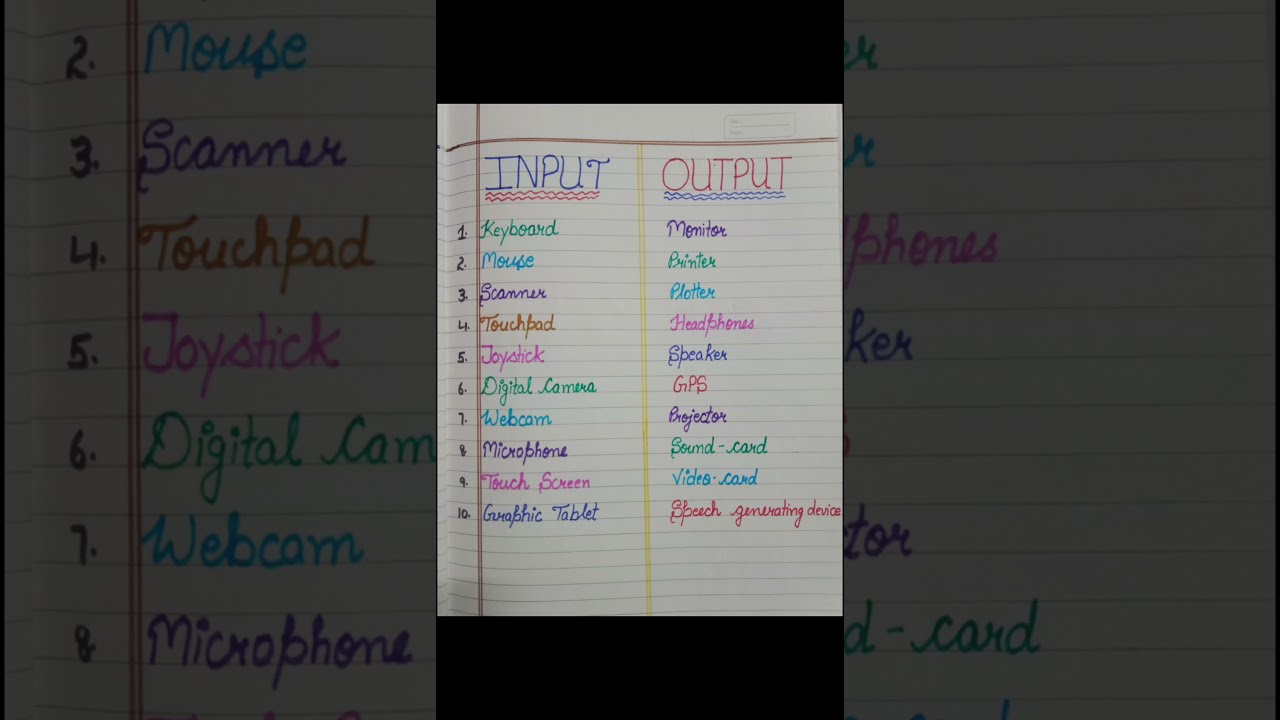 INPUT OUTPUT
1. Keyboard Monitor
2. Mouse Printer
3. Scanner Plotter
4. Touchpad Headphones
5. Joystick Speaker
6. Digital Camera GPS
7. Webcam Projector
8 Microphone Sound-card
9. Touch Screen Video-card
10. Graphic Tablet Speech generating device
2. Mouse
3. Scanner
4. Touchpad
5. Joystick
6. Digital Cam
7. Webcam
8 Microphone
er
r
phones
ker
tor
d-card